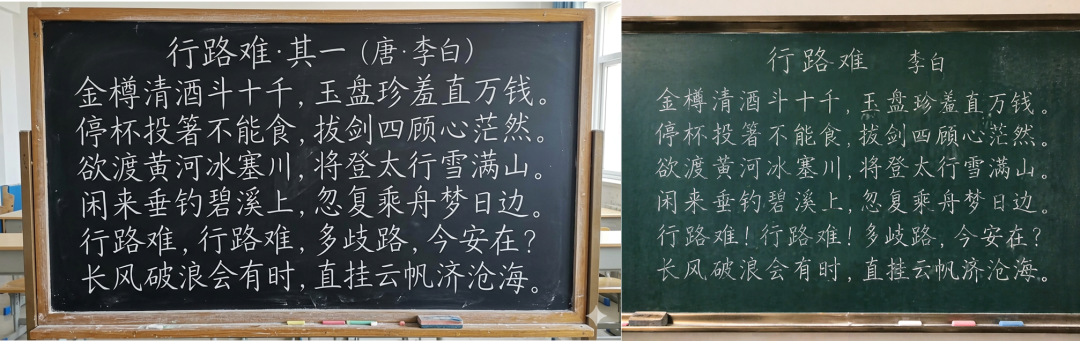 行路难·其一（唐·李白）
金樽清酒斗十千，玉盘珍羞直万钱。
停杯投箸不能食，拔剑四顾心茫然。
欲渡黄河冰塞川，将登太行雪满山。
闲来垂钓碧溪上，忽复乘舟梦日边。
行路难，行路难，多歧路，今安在？
长风破浪会有时，直挂云帆济沧海。
行路难 李白
金樽清酒斗十千，玉盘珍羞直万钱。
停杯投箸不能食，拔剑四顾心茫然。
欲渡黄河冰塞川，将登太行雪满山。
闲来垂钓碧溪上，忽复乘舟梦日边。
行路难！行路难！多歧路，今安在？
长风破浪会有时，直挂云帆济沧海。